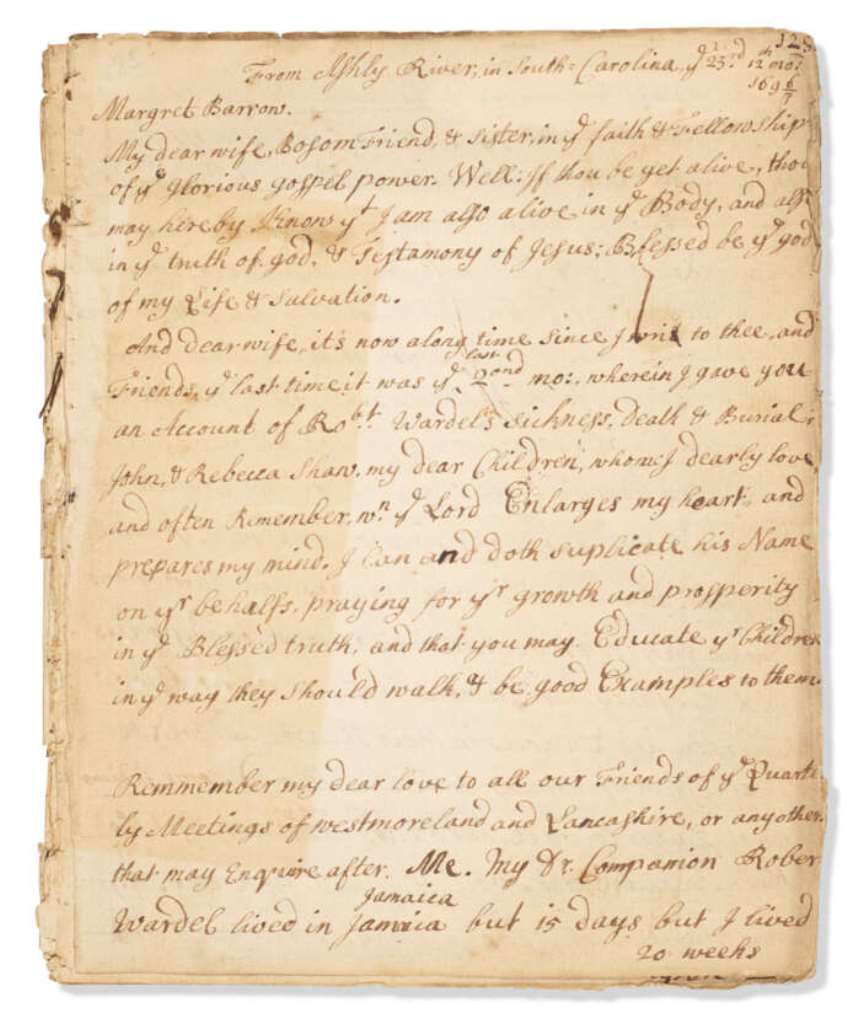 125
From Ashly River, in South=Carolina, yͤ 23ʳᵈ 12ᵗʰ mo:
169 6/7
Margret Barrow.
My dear wife, Bosom Friend, & sister, in yͤ faith & Fellowship
of yͤ Glorious gospel power. Well: If thou be yet alive, thou
may hereby Know yᵗ I am also alive in yͤ Body, and also
in yͤ truth of god, & Testamony of Jesus; Blessed be yͤ god
of my Life & salvation.
And dear wife, it's now along time since I writ to thee, and
Friends, yͤ last time it was yͤ last 2ond mo:, wherein I gave you
an Account of Roᵇᵗ. Wardel's Sickness, Death & Burial;
John, & Rebecca Shaw, my dear Children, whom I dearly love,
and often Remember, wⁿ yͤ Lord Enlarges my heart, and
prepares my mind, I Can and doth suplicate his Name
on yʳ behalfs, praying for yʳ growth and prosperity
in yͤ Blessed truth, and that you may Educate yʳ Children
in yͤ way they should walk, & be good Examples to them.
Remmember my dear love to all our Friends of yͤ Quarte
ly Meetings of westmoreland and Lancashire, or any other
that may Enquire after Me. My Dr. Companion Rober
Jamaica
Wardel lived in Jamaica but 15 days but I lived
20 weeks